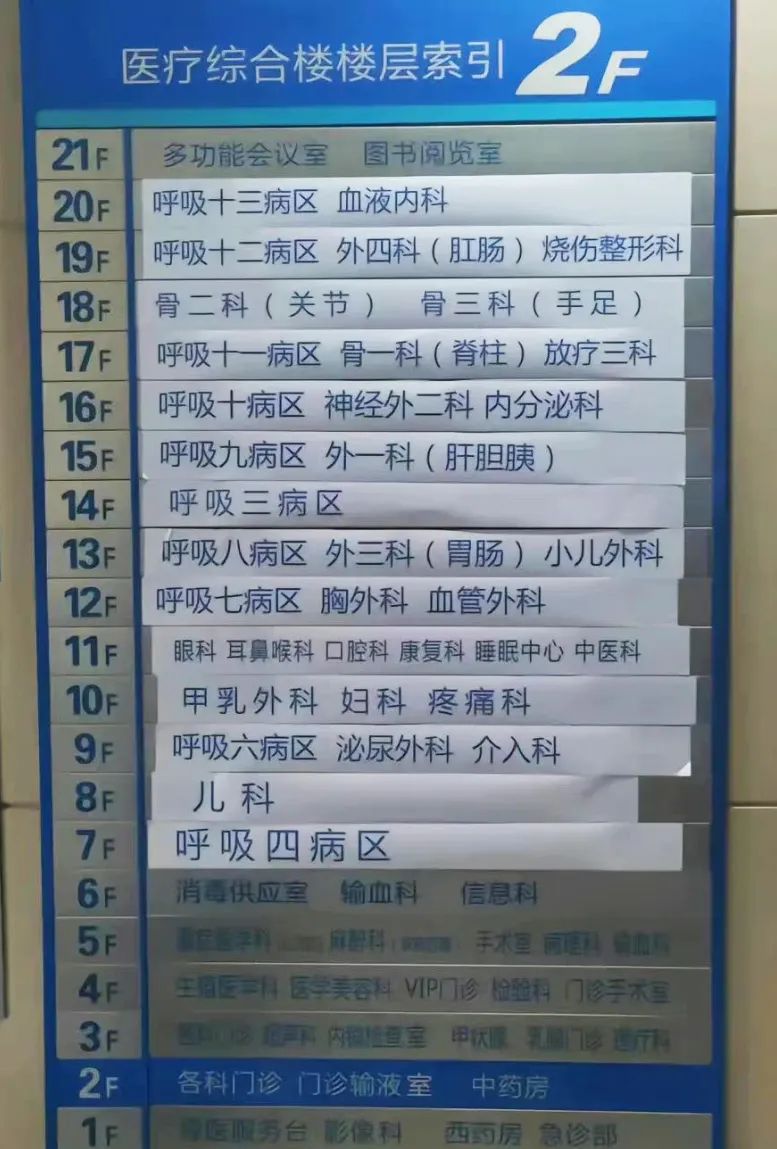 医疗综合楼楼层索引 2F
21F 多功能会议室 图书阅览室
20F 呼吸十三病区 血液内科
19F 呼吸十二病区 外四科（肛肠） 烧伤整形科
18F 骨二科（关节） 骨三科（手足）
17F 呼吸十一病区 骨一科（脊柱） 放疗三科
16F 呼吸十病区 神经外二科 内分泌科
15F 呼吸九病区 外一科（肝胆胰）
14F 呼吸三病区
13F 呼吸八病区 外三科（胃肠） 小儿外科
12F 呼吸七病区 胸外科 血管外科
11F 眼科 耳鼻喉科 口腔科 康复科 睡眠中心 中医科
10F 甲乳外科 妇科 疼痛科
9F 呼吸六病区 泌尿外科 介入科
8F 儿科
7F 呼吸四病区
6F 消毒供应室 输血科 信息科
5F 麻醉科 手术室 病理科 输血科
4F 生殖医学科 医学美容科 VIP门诊 检验科 门诊手术室
3F 超声科 内镜检查室 甲状腺 乳腺门诊 理疗科
2F 各科门诊 门诊输液室 中药房
1F 导医服务台 影像科 西药房 急诊部